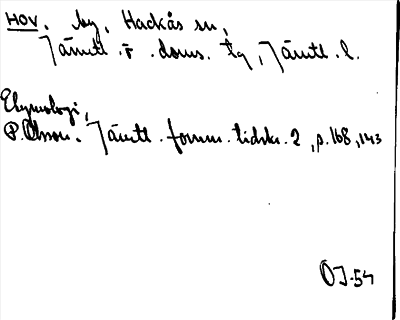 HOV. by, Hackås sn,
Jämtl. ö. doms. tg, Jämtl. l.
Etymologi,
P. Olsson. Jämtl. fornm. tidskr. 2, p. 168, 143
OJ-54